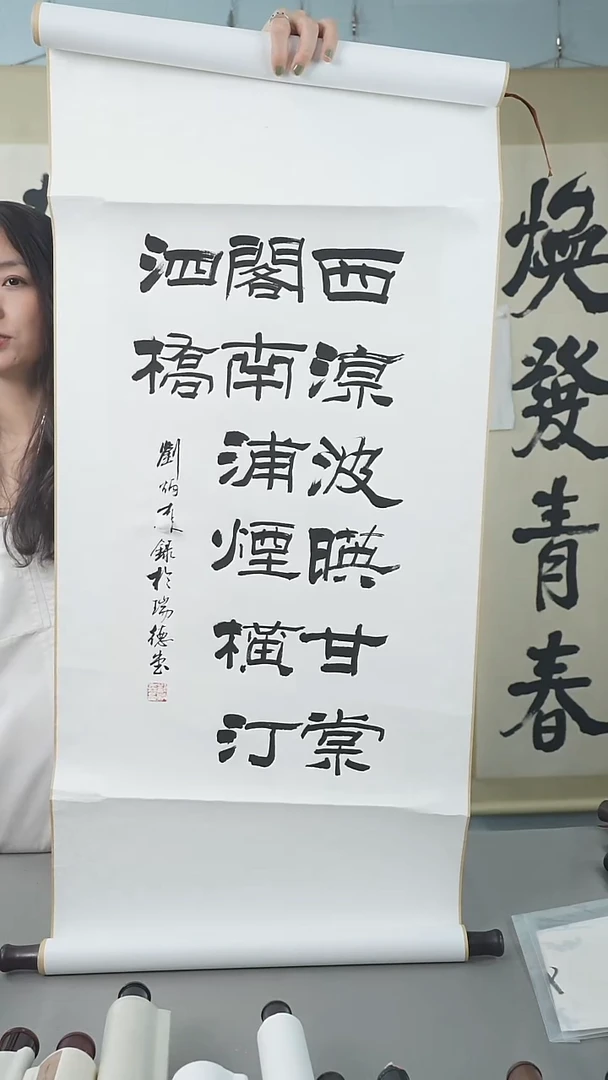 西涼波暎甘棠
閣南浦煙橫汀
泗橋
劉炳森錄於瑞德堂
煥發青春